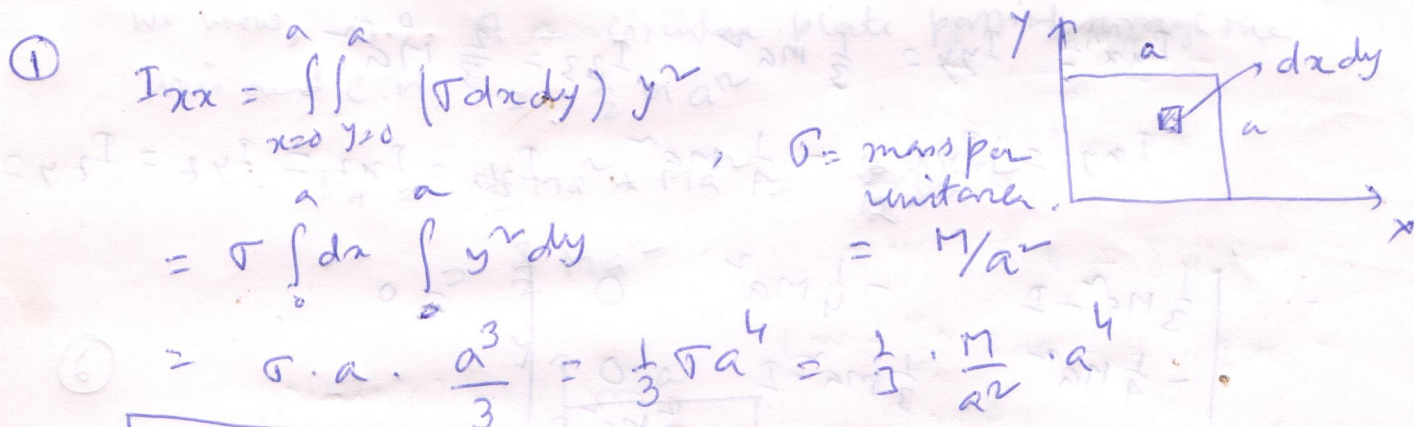 ①
I_xx = ∫_{x=0}^{a} ∫_{y=0}^{a} (σ dx dy) y²
, σ = mass per
unit area.
= σ ∫_0^a dx ∫_0^a y² dy
= M/a²
= σ · a · a³/3 = 1/3 σ a⁴ = 1/3 · M/a² · a⁴
Y
a
dx dy
a
x